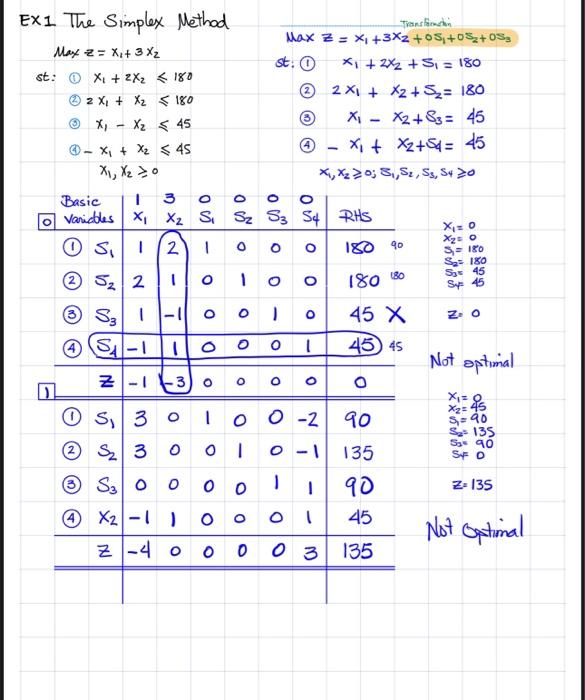 EX1 The Simplex Method
Max z = x₁ + 3x₂
st: ① x₁ + 2x₂ ⩽ 180
② 2x₁ + x₂ ⩽ 180
③ x₁ - x₂ ⩽ 45
④ - x₁ + x₂ ⩽ 45
x₁, x₂ ⩾ 0
Transformation
Max z = x₁ + 3x₂ + 0S₁ + 0S₂ + 0S₃
st: ① x₁ + 2x₂ + S₁ = 180
② 2x₁ + x₂ + S₂ = 180
③ x₁ - x₂ + S₃ = 45
④ - x₁ + x₂ + S₄ = 45
x₁, x₂ ⩾ 0; S₁, S₂, S₃, S₄ ⩾ 0
Basic 1 3 0 0 0 0
0 Variables x₁ x₂ S₁ S₂ S₃ S₄ RHS
① S₁ 1 2 1 0 0 0 180 90
② S₂ 2 1 0 1 0 0 180 180
③ S₃ 1 -1 0 0 1 0 45 X
④ S₄ -1 1 0 0 0 1 45 45
z -1 -3 0 0 0 0 0
x₁ = 0
x₂ = 0
S₁ = 180
S₂ = 180
S₃ = 45
S₄ = 45
z = 0
Not optimal
1
① S₁ 3 0 1 0 0 -2 90
② S₂ 3 0 0 1 0 -1 135
③ S₃ 0 0 0 0 1 1 90
④ x₂ -1 1 0 0 0 1 45
z -4 0 0 0 0 3 135
x₁ = 0
x₂ = 45
S₁ = 90
S₂ = 135
S₃ = 90
S₄ = 0
z = 135
Not optimal